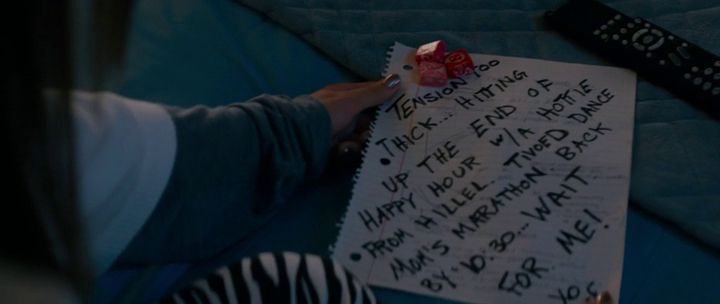 TENSION TOO
THICK... HITTING
UP THE END OF
HAPPY HOUR W/A HOTTIE
FROM HILLEL. TIVOED DANCE
MOM'S MARATHON BACK
BY 10:30... WAIT
FOR ME!